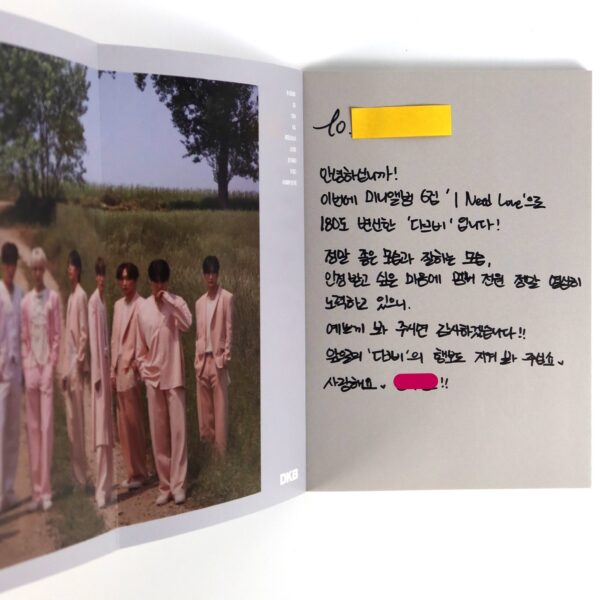 DKB
To.
안녕하십니까!
이번에 미니앨범 6집 'I Need Love'으로
180도 변신한 '다크비' 입니다!
정말 좋은 모습과 잘하는 모습,
인정받고 싶은 마음에 멤버 전원 정말 열심히
노력하고 있으니.
예쁘게 봐 주시면 감사하겠습니다!!
앞으의 '다크비'의 행보도 지켜 봐 주십쇼
사랑해요 !!